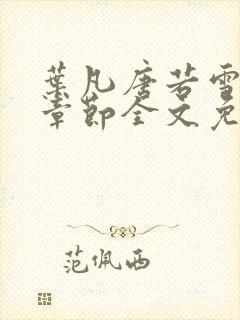 葉凡唐若雪
章節全文免
范佩西